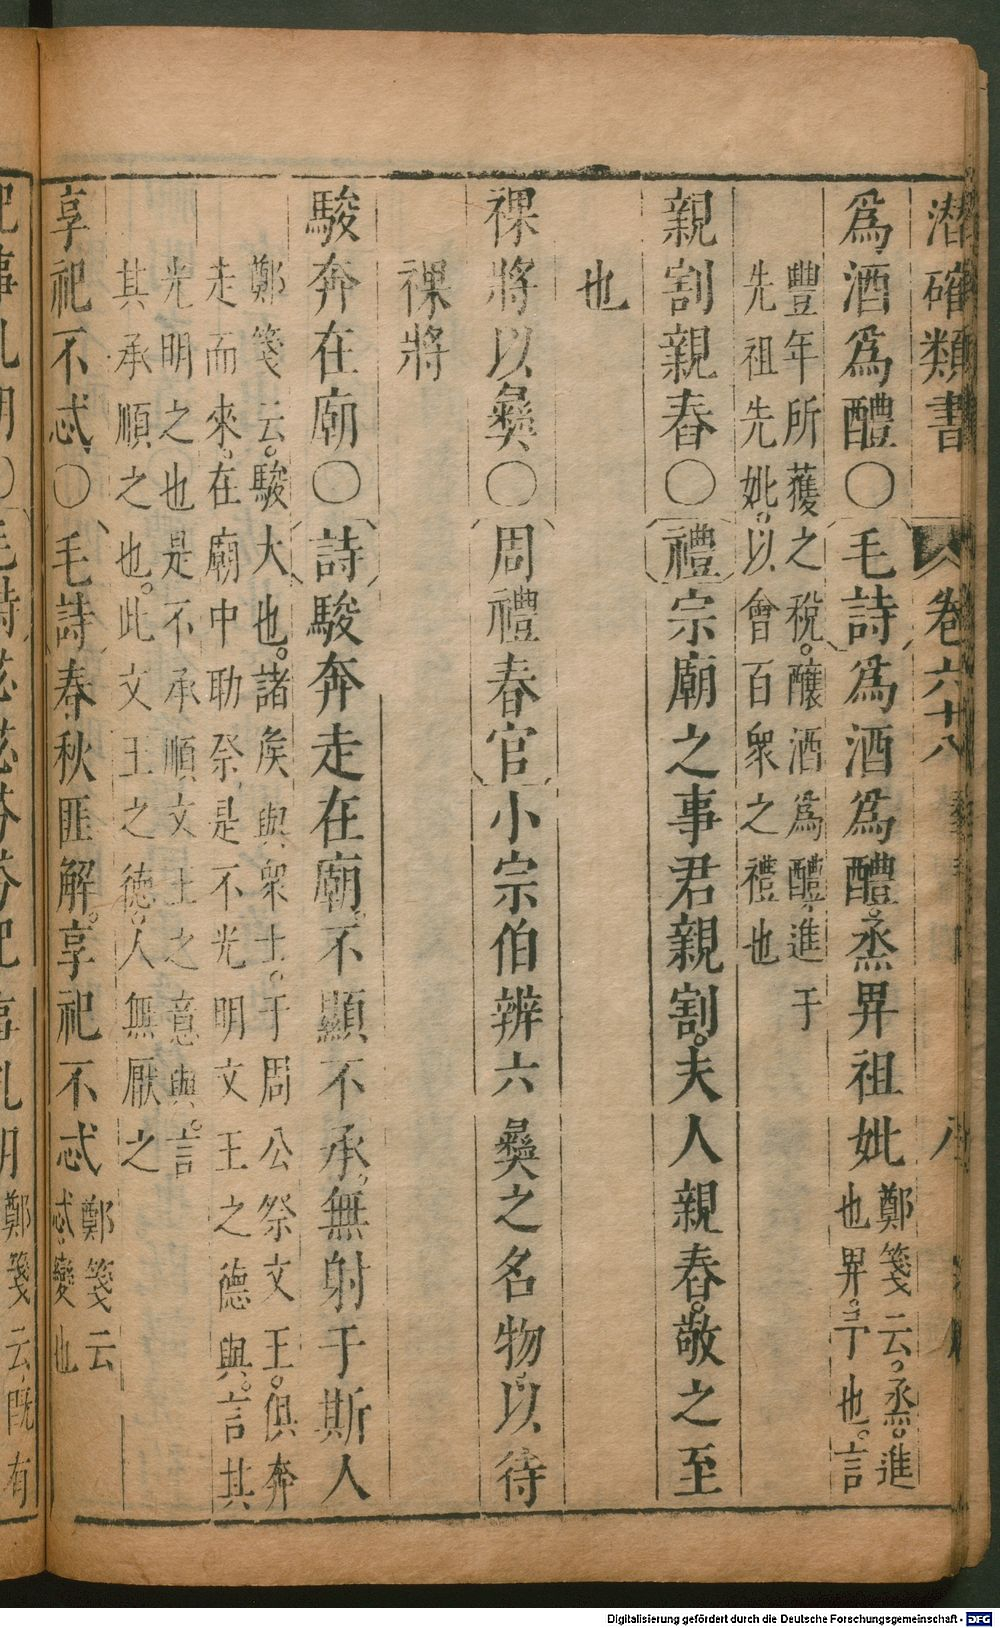 潛確類書 卷六十八 八
爲酒爲醴〇毛詩爲酒爲醴。烝畀祖妣鄭箋云。烝。進也畀。予也。言
豐年所獲之稅。釀酒爲醴。進于
先祖先妣。以會百衆之禮也
親割親舂〇禮宗廟之事君親割。夫人親舂。敬之至
也
祼將以彝〇周禮春官小宗伯辨六彝之名物。以待
祼將
駿奔在廟〇詩駿奔走在廟。不顯不承。無射于斯人
鄭箋云。駿大也。諸矦與衆士。于周公祭文王。俱奔
走而來。在廟中助祭。是不光明文王之德與。言其
光明之也是不承順文王之意與。言
其承順之也。此文王之德。人無厭之
享祀不忒〇毛詩春秋匪解。享祀不忒鄭箋云忒變也
祀事孔明〇毛詩苾苾芬芬祀事孔明鄭箋云。既有
Digitalisierung gefördert durch die Deutsche Forschungsgemeinschaft - DFG